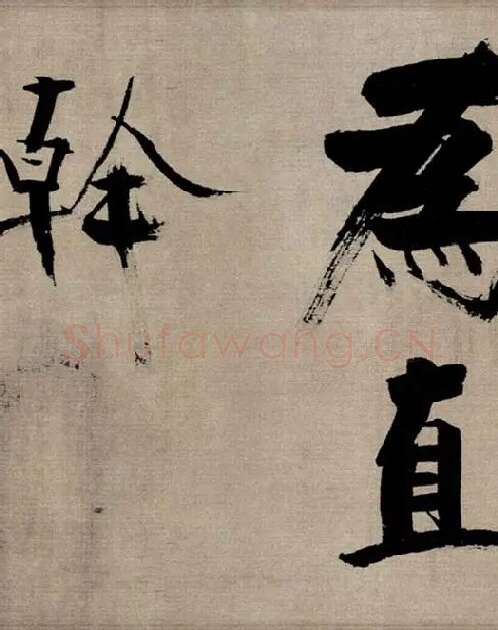 為直
榦
Shufawang.CN